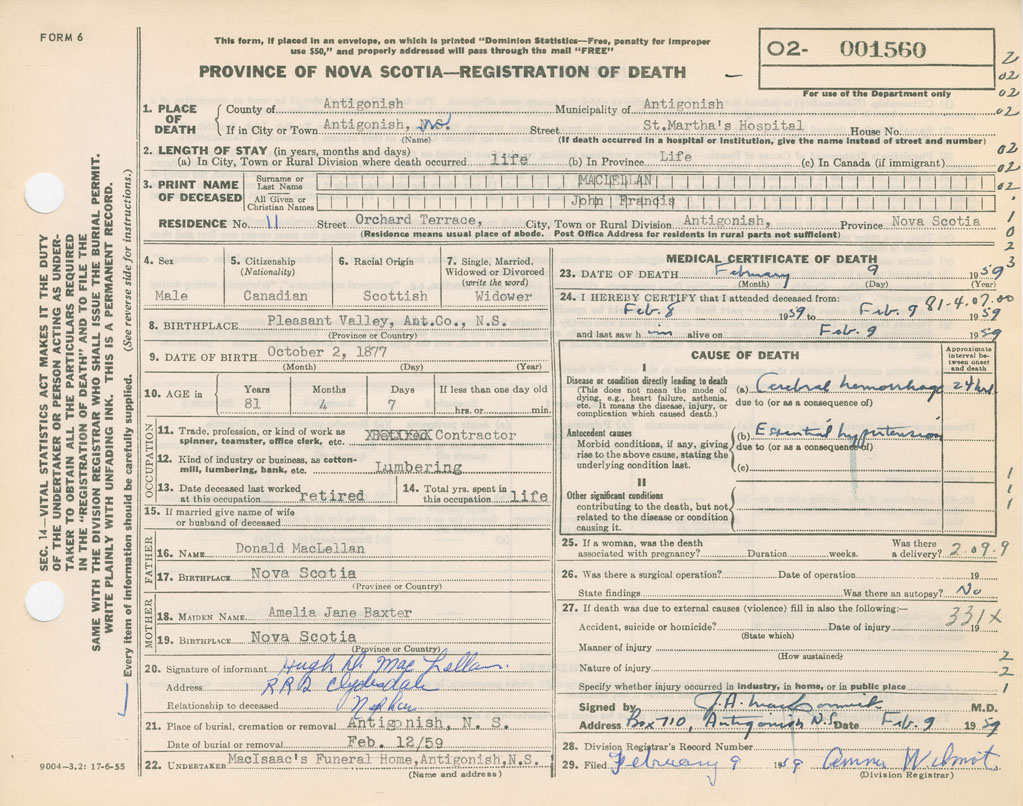 FORM 6
This form, if placed in an envelope, on which is printed "Dominion Statistics—Free, penalty for improper
use $50," and properly addressed will pass through the mail "FREE"
PROVINCE OF NOVA SCOTIA—REGISTRATION OF DEATH
02- 001560
For use of the Department only
SEC. 14—VITAL STATISTICS ACT MAKES IT THE DUTY
OF THE UNDERTAKER OR PERSON ACTING AS UNDER-
TAKER TO OBTAIN ALL THE PARTICULARS REQUIRED
IN THE "REGISTRATION OF DEATH" AND TO FILE THE
SAME WITH THE DIVISION REGISTRAR WHO SHALL ISSUE THE BURIAL PERMIT.
WRITE PLAINLY WITH UNFADING INK. THIS IS A PERMANENT RECORD.
Every item of information should be carefully supplied. (See reverse side for instructions.)
1. PLACE OF DEATH County of Antigonish Municipality of Antigonish
If in City or Town Antigonish, N.S. Street St.Martha's Hospital House No.
(Name) (If death occurred in a hospital or institution, give the name instead of street and number)
2. LENGTH OF STAY (in years, months and days)
(a) In City, Town or Rural Division where death occurred life (b) In Province Life (c) In Canada (if immigrant)
3. PRINT NAME OF DECEASED Surname or Last Name MACLELLAN
All Given or Christian Names John Francis
RESIDENCE No. 11 Street Orchard Terrace, City, Town or Rural Division Antigonish, Province Nova Scotia
(Residence means usual place of abode. Post Office Address for residents in rural parts not sufficient)
4. Sex Male
5. Citizenship (Nationality) Canadian
6. Racial Origin Scottish
7. Single, Married, Widowed or Divorced (write the word) Widower
8. BIRTHPLACE Pleasant Valley, Ant.Co., N.S.
(Province or Country)
9. DATE OF BIRTH October 2, 1877
(Month) (Day) (Year)
10. AGE in Years 81 Months 4 Days 7 If less than one day old hrs. or min.
OCCUPATION
11. Trade, profession, or kind of work as spinner, teamster, office clerk, etc. Contractor
12. Kind of industry or business, as cotton-mill, lumbering, bank, etc. Lumbering
13. Date deceased last worked at this occupation retired
14. Total yrs. spent in this occupation life
15. If married give name of wife or husband of deceased
FATHER
16. NAME Donald MacLellan
17. BIRTHPLACE Nova Scotia
(Province or Country)
MOTHER
18. MAIDEN NAME Amelia Jane Baxter
19. BIRTHPLACE Nova Scotia
(Province or Country)
20. Signature of informant Hugh D. MacLellan.
Address RR2 Clydesdale
Relationship to deceased Nephew
21. Place of burial, cremation or removal Antigonish, N. S.
Date of burial or removal Feb. 12/59
22. UNDERTAKER MacIsaac's Funeral Home,Antigonish,N.S.
(Name and address)
9004-3.2: 17-6-55
MEDICAL CERTIFICATE OF DEATH
23. DATE OF DEATH February 9 1959
(Month) (Day) (Year)
24. I HEREBY CERTIFY that I attended deceased from:
Feb. 8 1959 to Feb. 9 1959
81-4.07.00
and last saw h im alive on Feb. 9 1959
CAUSE OF DEATH
Approximate interval between onset and death
I
Disease or condition directly leading to death (a) Cerebral hemorrhage 24 hrs
(This does not mean the mode of dying, e.g., heart failure, asthenia, etc. It means the disease, injury, or complication which caused death.)
due to (or as a consequence of)
Antecedent causes (b) Essential hypertension
Morbid conditions, if any, giving rise to the above cause, stating the underlying condition last.
due to (or as a consequence of)
(c)
II
Other significant conditions
contributing to the death, but not related to the disease or condition causing it.
25. If a woman, was the death associated with pregnancy? Duration weeks. Was there a delivery? 2.09.9
26. Was there a surgical operation? Date of operation 19
State findings Was there an autopsy? No
27. If death was due to external causes (violence) fill in also the following:—
331X
Accident, suicide or homicide? Date of injury 19
(State which)
Manner of injury
(How sustained)
Nature of injury
Specify whether injury occurred in industry, in home, or in public place
Signed by J.A. MacCormick M.D.
Address Box 710, Antigonish N.S. Date Feb. 9 1959
28. Division Registrar's Record Number
29. Filed February 9 1959 Wilmot
(Division Registrar)
2
02
02
02
02
02
02
1
0
2
3
1
1
1
2
2
1